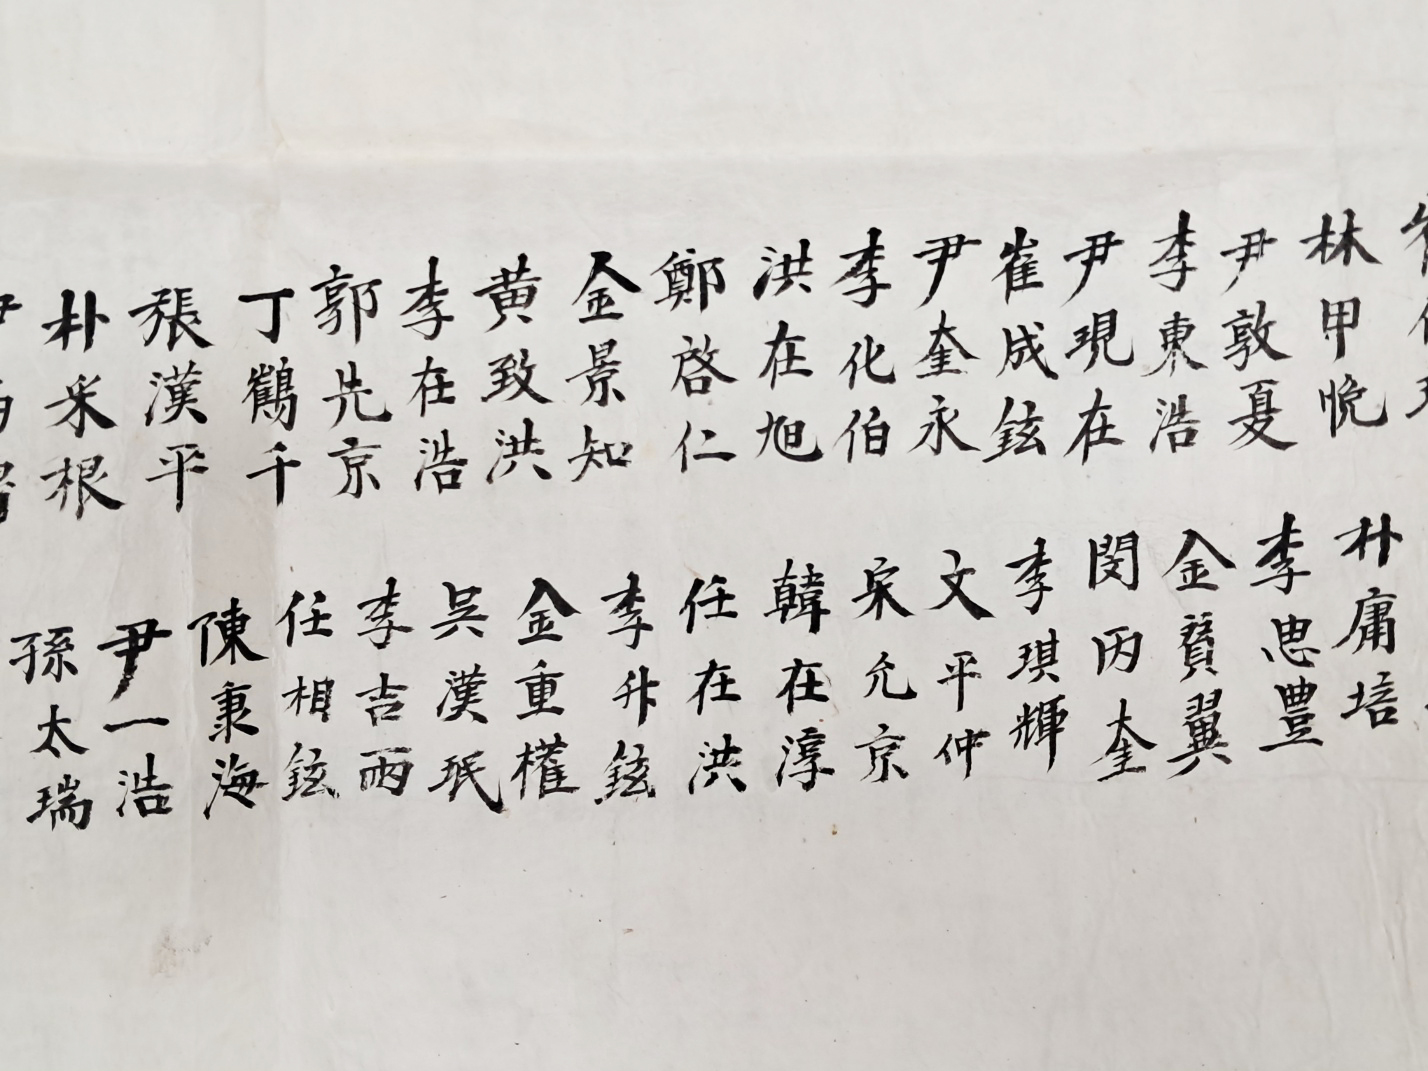 林甲悅
尹敦夏
李東浩
尹現在
崔成鉉
尹奎永
李化伯
洪在旭
鄭啓仁
金景知
黃致洪
李在浩
郭先京
丁鶴千
張漢平
朴采根
朴庸培
李思豊
金賓翼
閔丙奎
李琪輝
文平仲
宋允京
韓在淳
任在洪
李升鉉
金重權
吳漢珉
李吉雨
任相鉉
陳秉海
尹一浩
孫太瑞